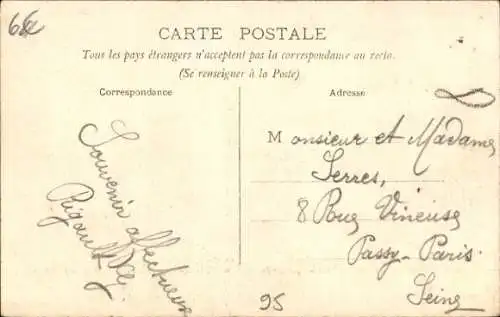 CARTE POSTALE
Tous les pays étrangers n'acceptent pas la correspondance au recto.
(Se renseigner à la Poste)
Correspondance
Adresse
Souvenir affectueux
Rigault
Monsieur et Madame
Serres,
8 Rue Vineuse
Passy-Paris
Seine
95